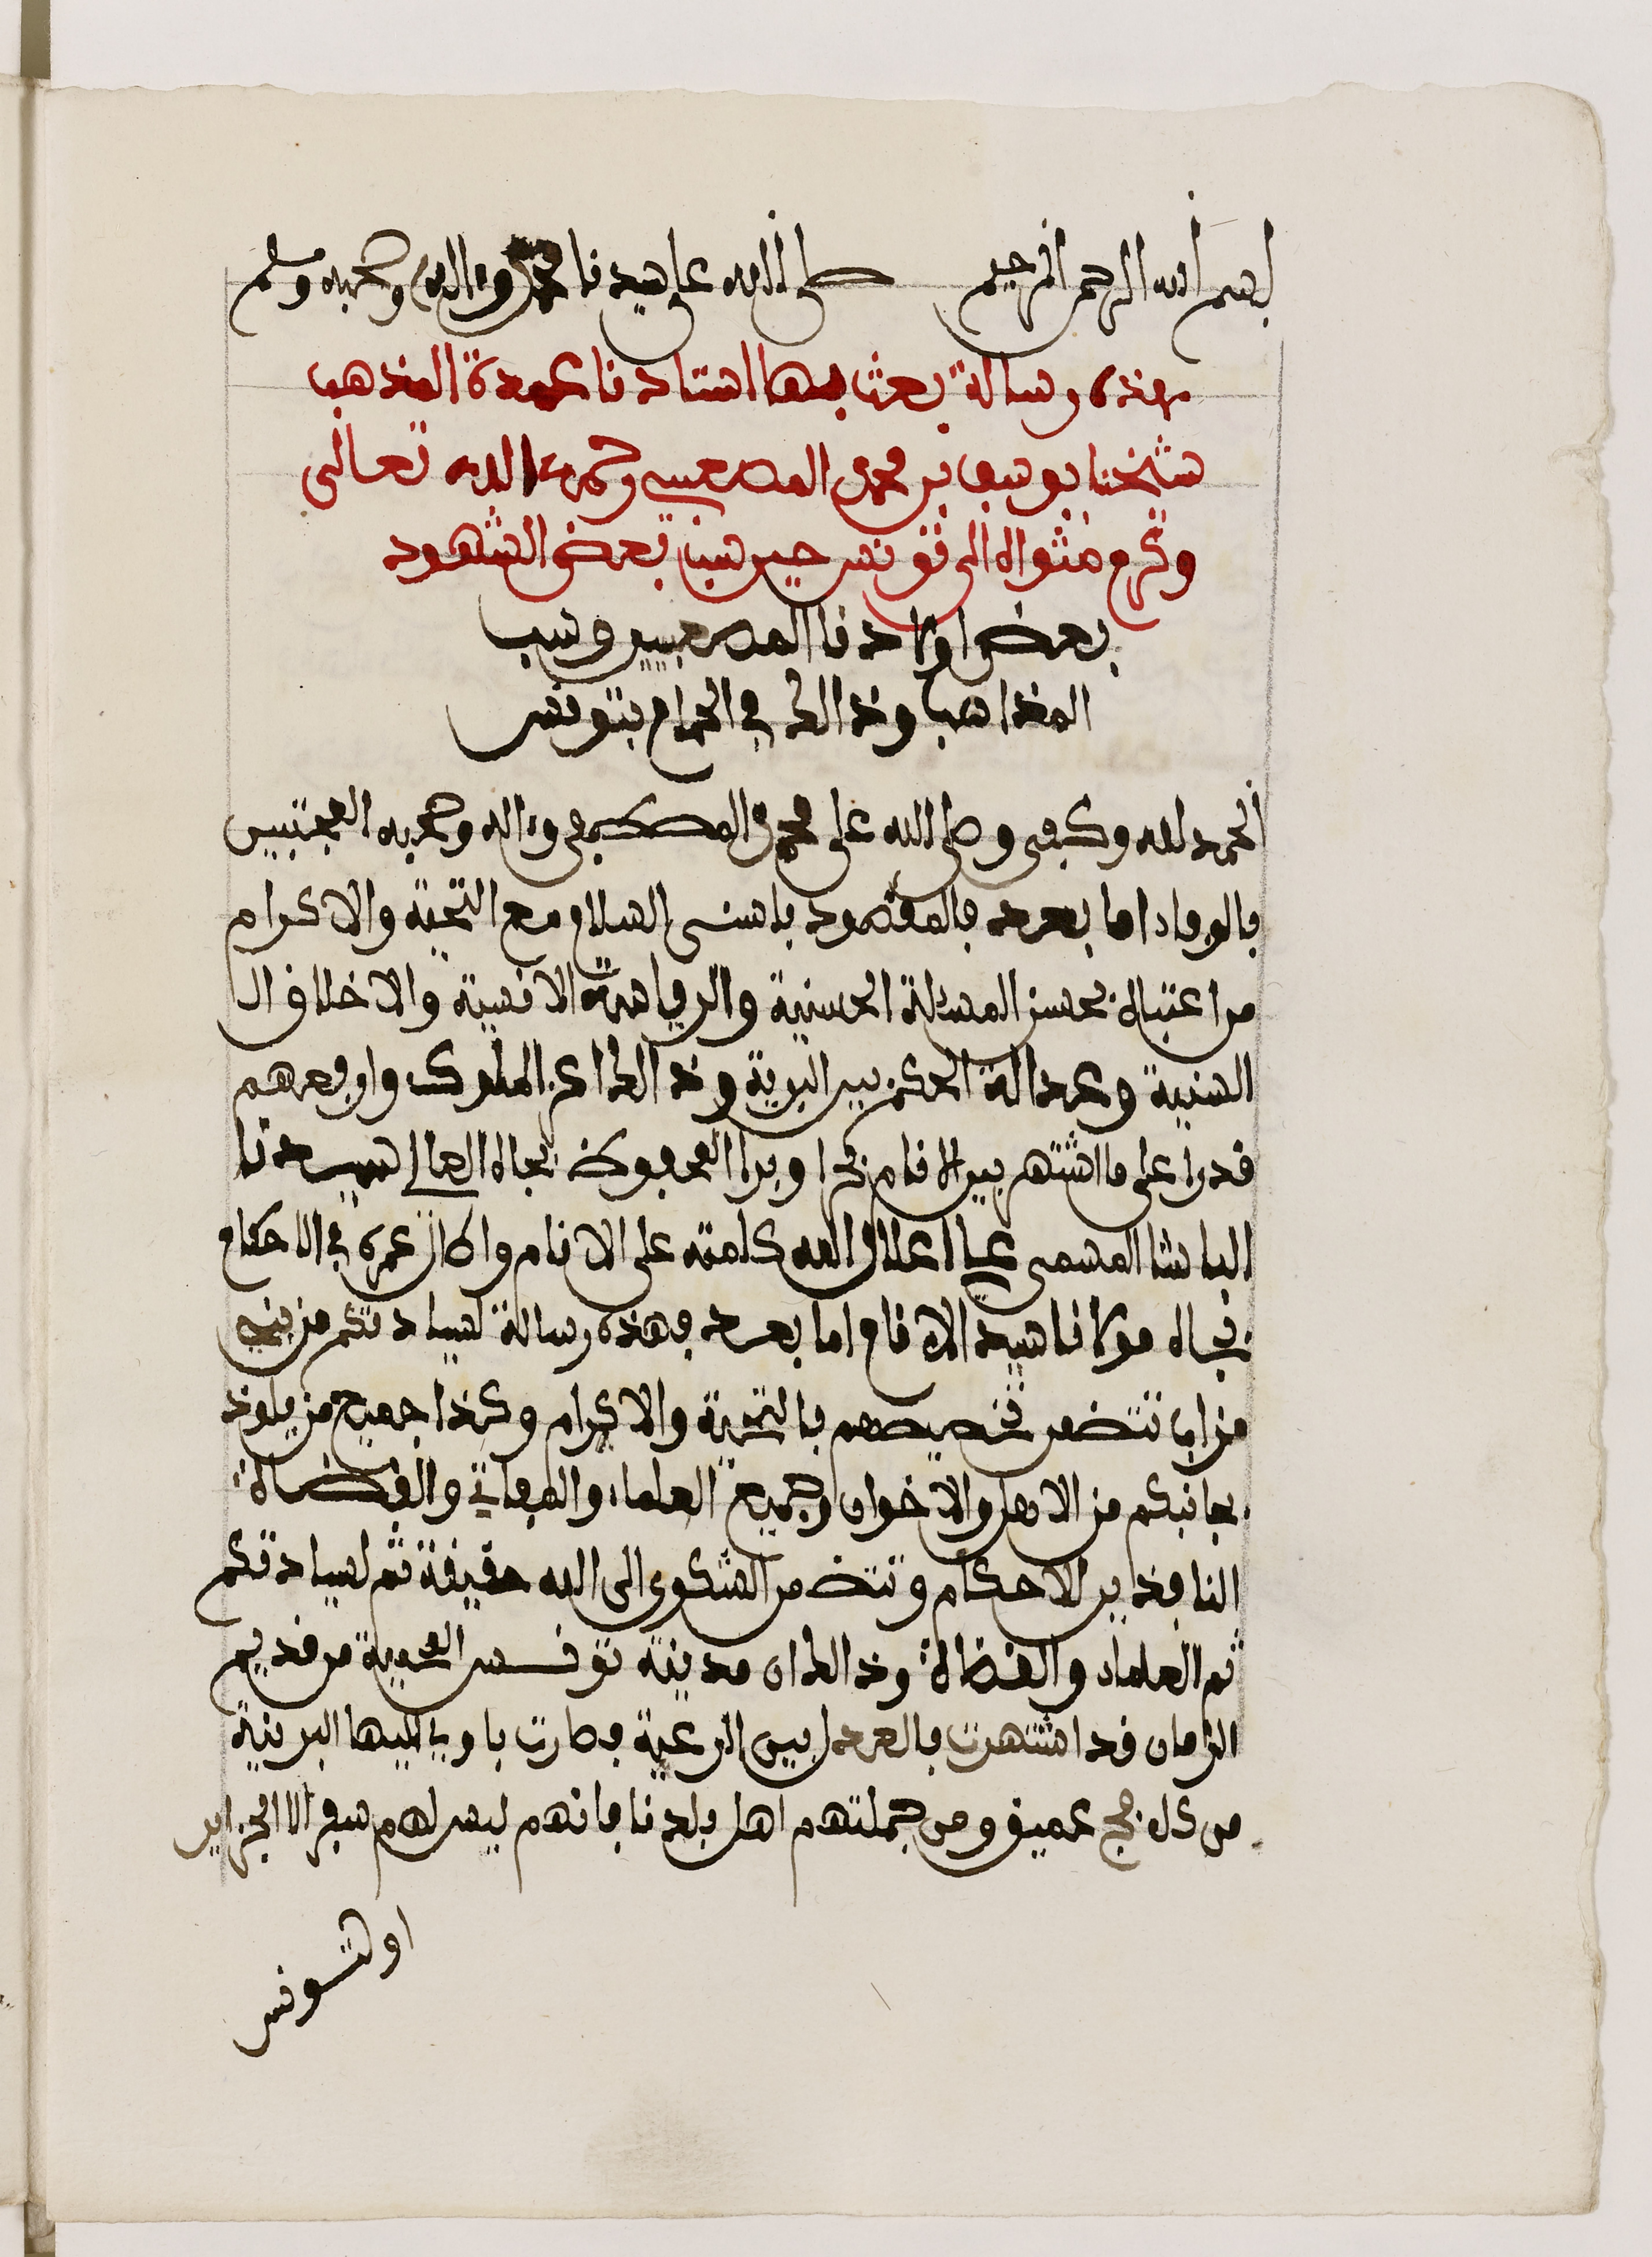 بسم الله الرحمن الرحيم صلى الله على سيدنا محمد وءاله وصحبه وسلم
هذه رسالة بعث بها استادنا عمدة المذهب
شيخنا يوسف بن محمد المصعبي رحمه الله تعالى
وكرم مثواه الى تونس حين سب بعض الشهود
بعض اولادنا المصعبيين وسب
المذاهب وذالك في الحمام بتونس
الحمد لله وكفى وصلى الله على محمد المصطفى وءاله وصحبه المجتبيين
بالوفاء اما بعد فالمقصود باسنى السلام مع التحية والاكرام
من اعتباه بحسن المسالة الحسنية والرياسة الانسية والاخلاق ال
السنية وعدالة الحكم بين البرية وذالك اعز الملوك وارفعهم
قدرا على ما اشتهر بين الانام بحرا وبرا المحفوظ بجاه العالى سيدنا
الباشا المسمى علي اعلى الله كلمته على الانام واطال عمره في الاحكام
بجاه مولانا سيد الانام اما بعد فهذه رسالة لسيادتكم من بني
مزاب تتضمن تخصيصهم بالتحية والاكرام وكذا جميع من يلوذ
بجانبكم من الاهل والاخوان وجميع العلماء والمفاتي والقضاة
النافذين الاحكام وتتضمن الشكوى الى الله حقيقة ثم لسيادتكم
ثم العلماء والقضاة وذالك ان مدينة تونس المحمية من قديم
الزمان قد اشتهرت بالعدل بين الرعية فصارت ياوي اليها البرنية
من كل فج عميق ومن جملتهم اهل بلدنا فانهم ليس لهم سفر الا الجزاير
او لتونس